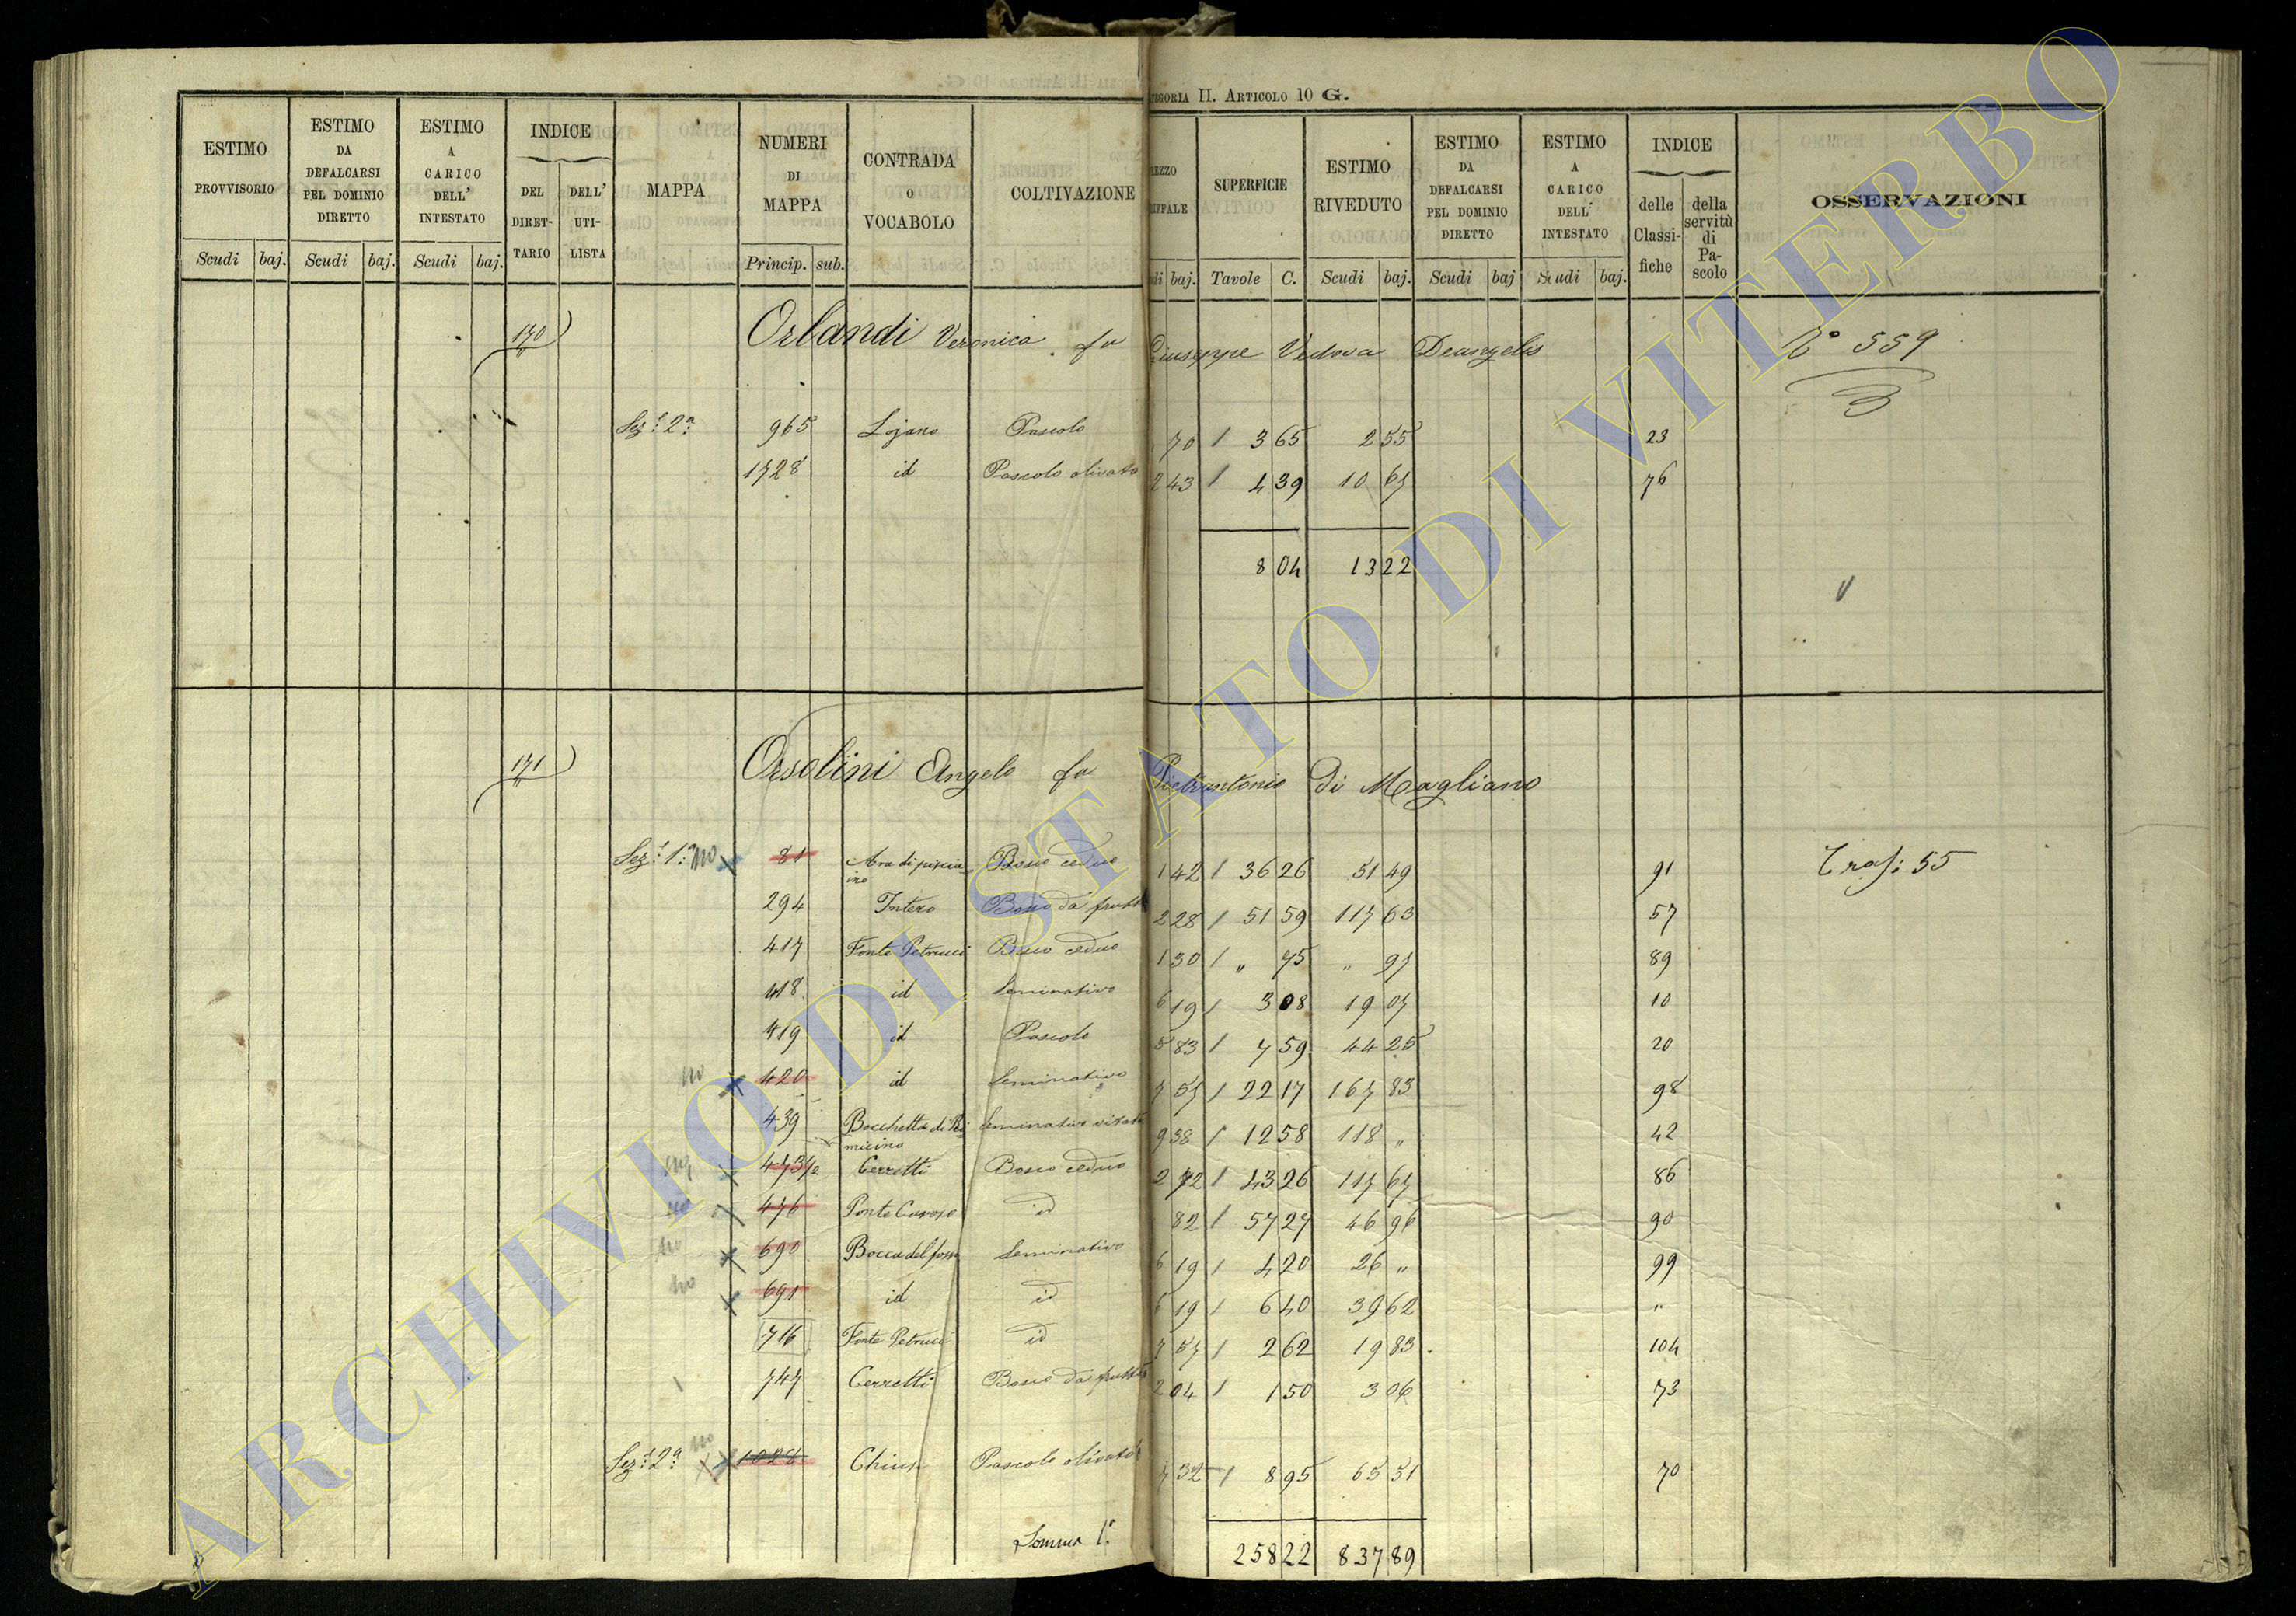 CATEGORIA II. ARTICOLO 10 G.
ESTIMO PROVVISORIO
ESTIMO DA DEFALCARSI PEL DOMINIO DIRETTO
ESTIMO A CARICO DELL' INTESTATO
INDICE
DEL DIRET-TARIO
DELL' UTI-LISTA
MAPPA
NUMERI DI MAPPA
CONTRADA O VOCABOLO
COLTIVAZIONE
SUPERFICIE
ESTIMO RIVEDUTO
ESTIMO DA DEFALCARSI PEL DOMINIO DIRETTO
ESTIMO A CARICO DELL' INTESTATO
INDICE
delle Classi-fiche
della servitù di Pa-scolo
OSSERVAZIONI
Scudi baj. Scudi baj. Scudi baj. Princip. sub. baj. Tavole C. Scudi baj. Scudi baj Scudi baj.
170 Orlandi Veronica fu Giuseppe Vedova Deangelis N° 559
3
Sez.e 2a 965 Lojano Pascolo 70 / 3 65 2 55 23
1728 id Pascolo olivato 2 43 / 4 39 10 67 76
8 04 13 22
171 Orsolini Angelo fu Pietrantonio di Magliano
Sez.e 1a no 81 Ara di piscia ino Bosco ceduo 1 42 / 36 26 51 49 91 Tras: 55
294 Intero Bosco da frutto 2 28 / 51 59 117 63 57
417 Fonte Petrucci Bosco ceduo 1 30 / " 75 " 97 89
418 id Seminativo 6 19 / 3 08 19 07 10
419 id Pascolo 5 83 / 7 59 44 25 20
no 420 id Seminativo 7 57 / 22 17 167 83 98
439 Bocchetta di Ri micino Seminativo vitato 9 38 / 12 58 118 " 42
no 473/2 Cerretti Bosco ceduo 2 72 / 43 26 117 67 86
no 476 Ponte Caroso id 82 / 57 27 46 96 90
no 690 Bocca del fosso Seminativo 6 19 / 4 20 26 " 99
no 691 id id 6 19 / 6 40 39 62 "
716 Fonte Petrucci id 7 57 / 2 62 19 83 104
747 Cerretti Bosco da frutto 2 04 / 1 50 3 06 73
Sez.e 2a no 1028 Pascolo olivato 7 32 / 8 95 65 51 70
Somma 1a 258 22 837 89
ARCHIVIO DI STATO DI VITERBO